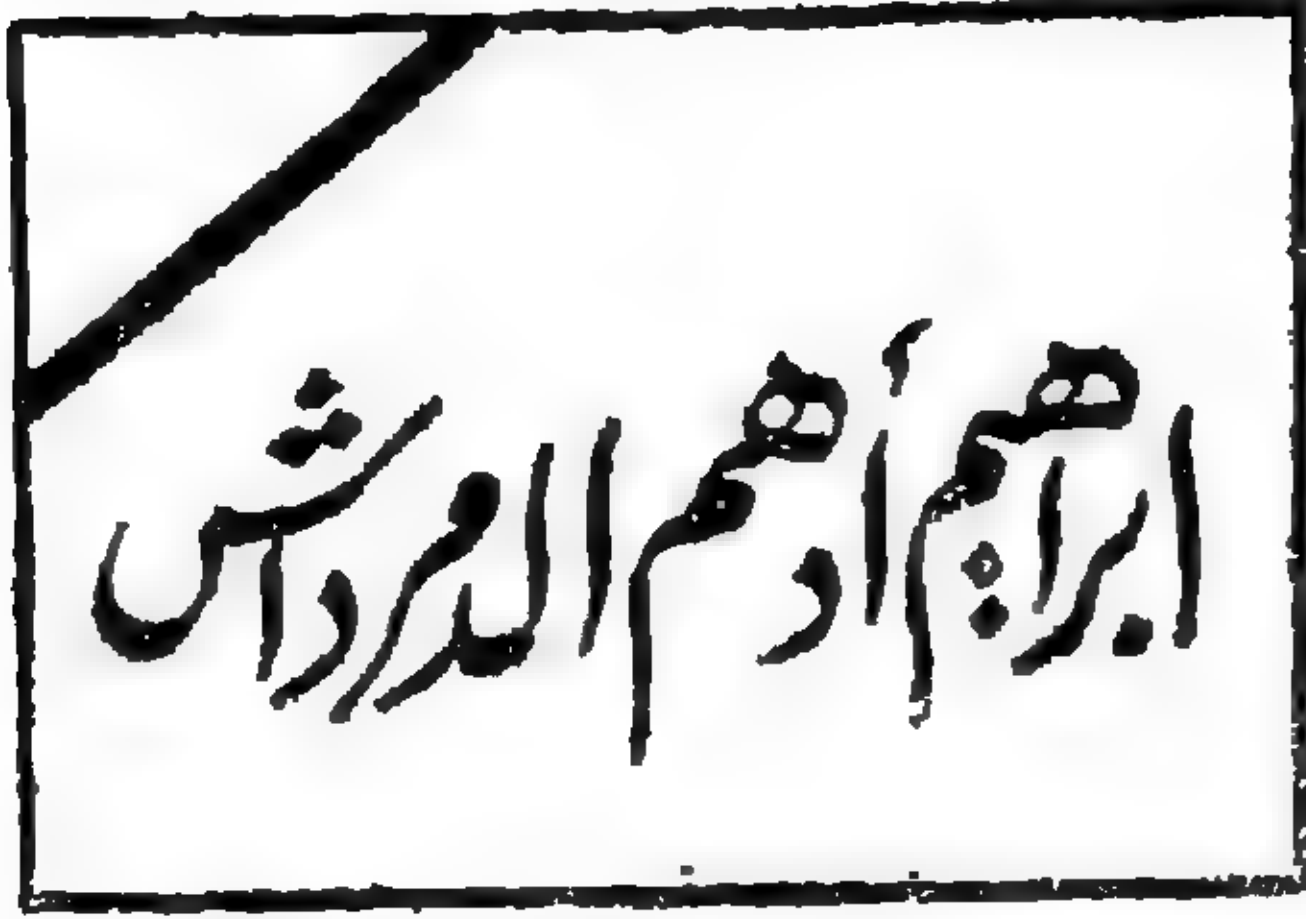 ابراهيم أدهم الدمرداش